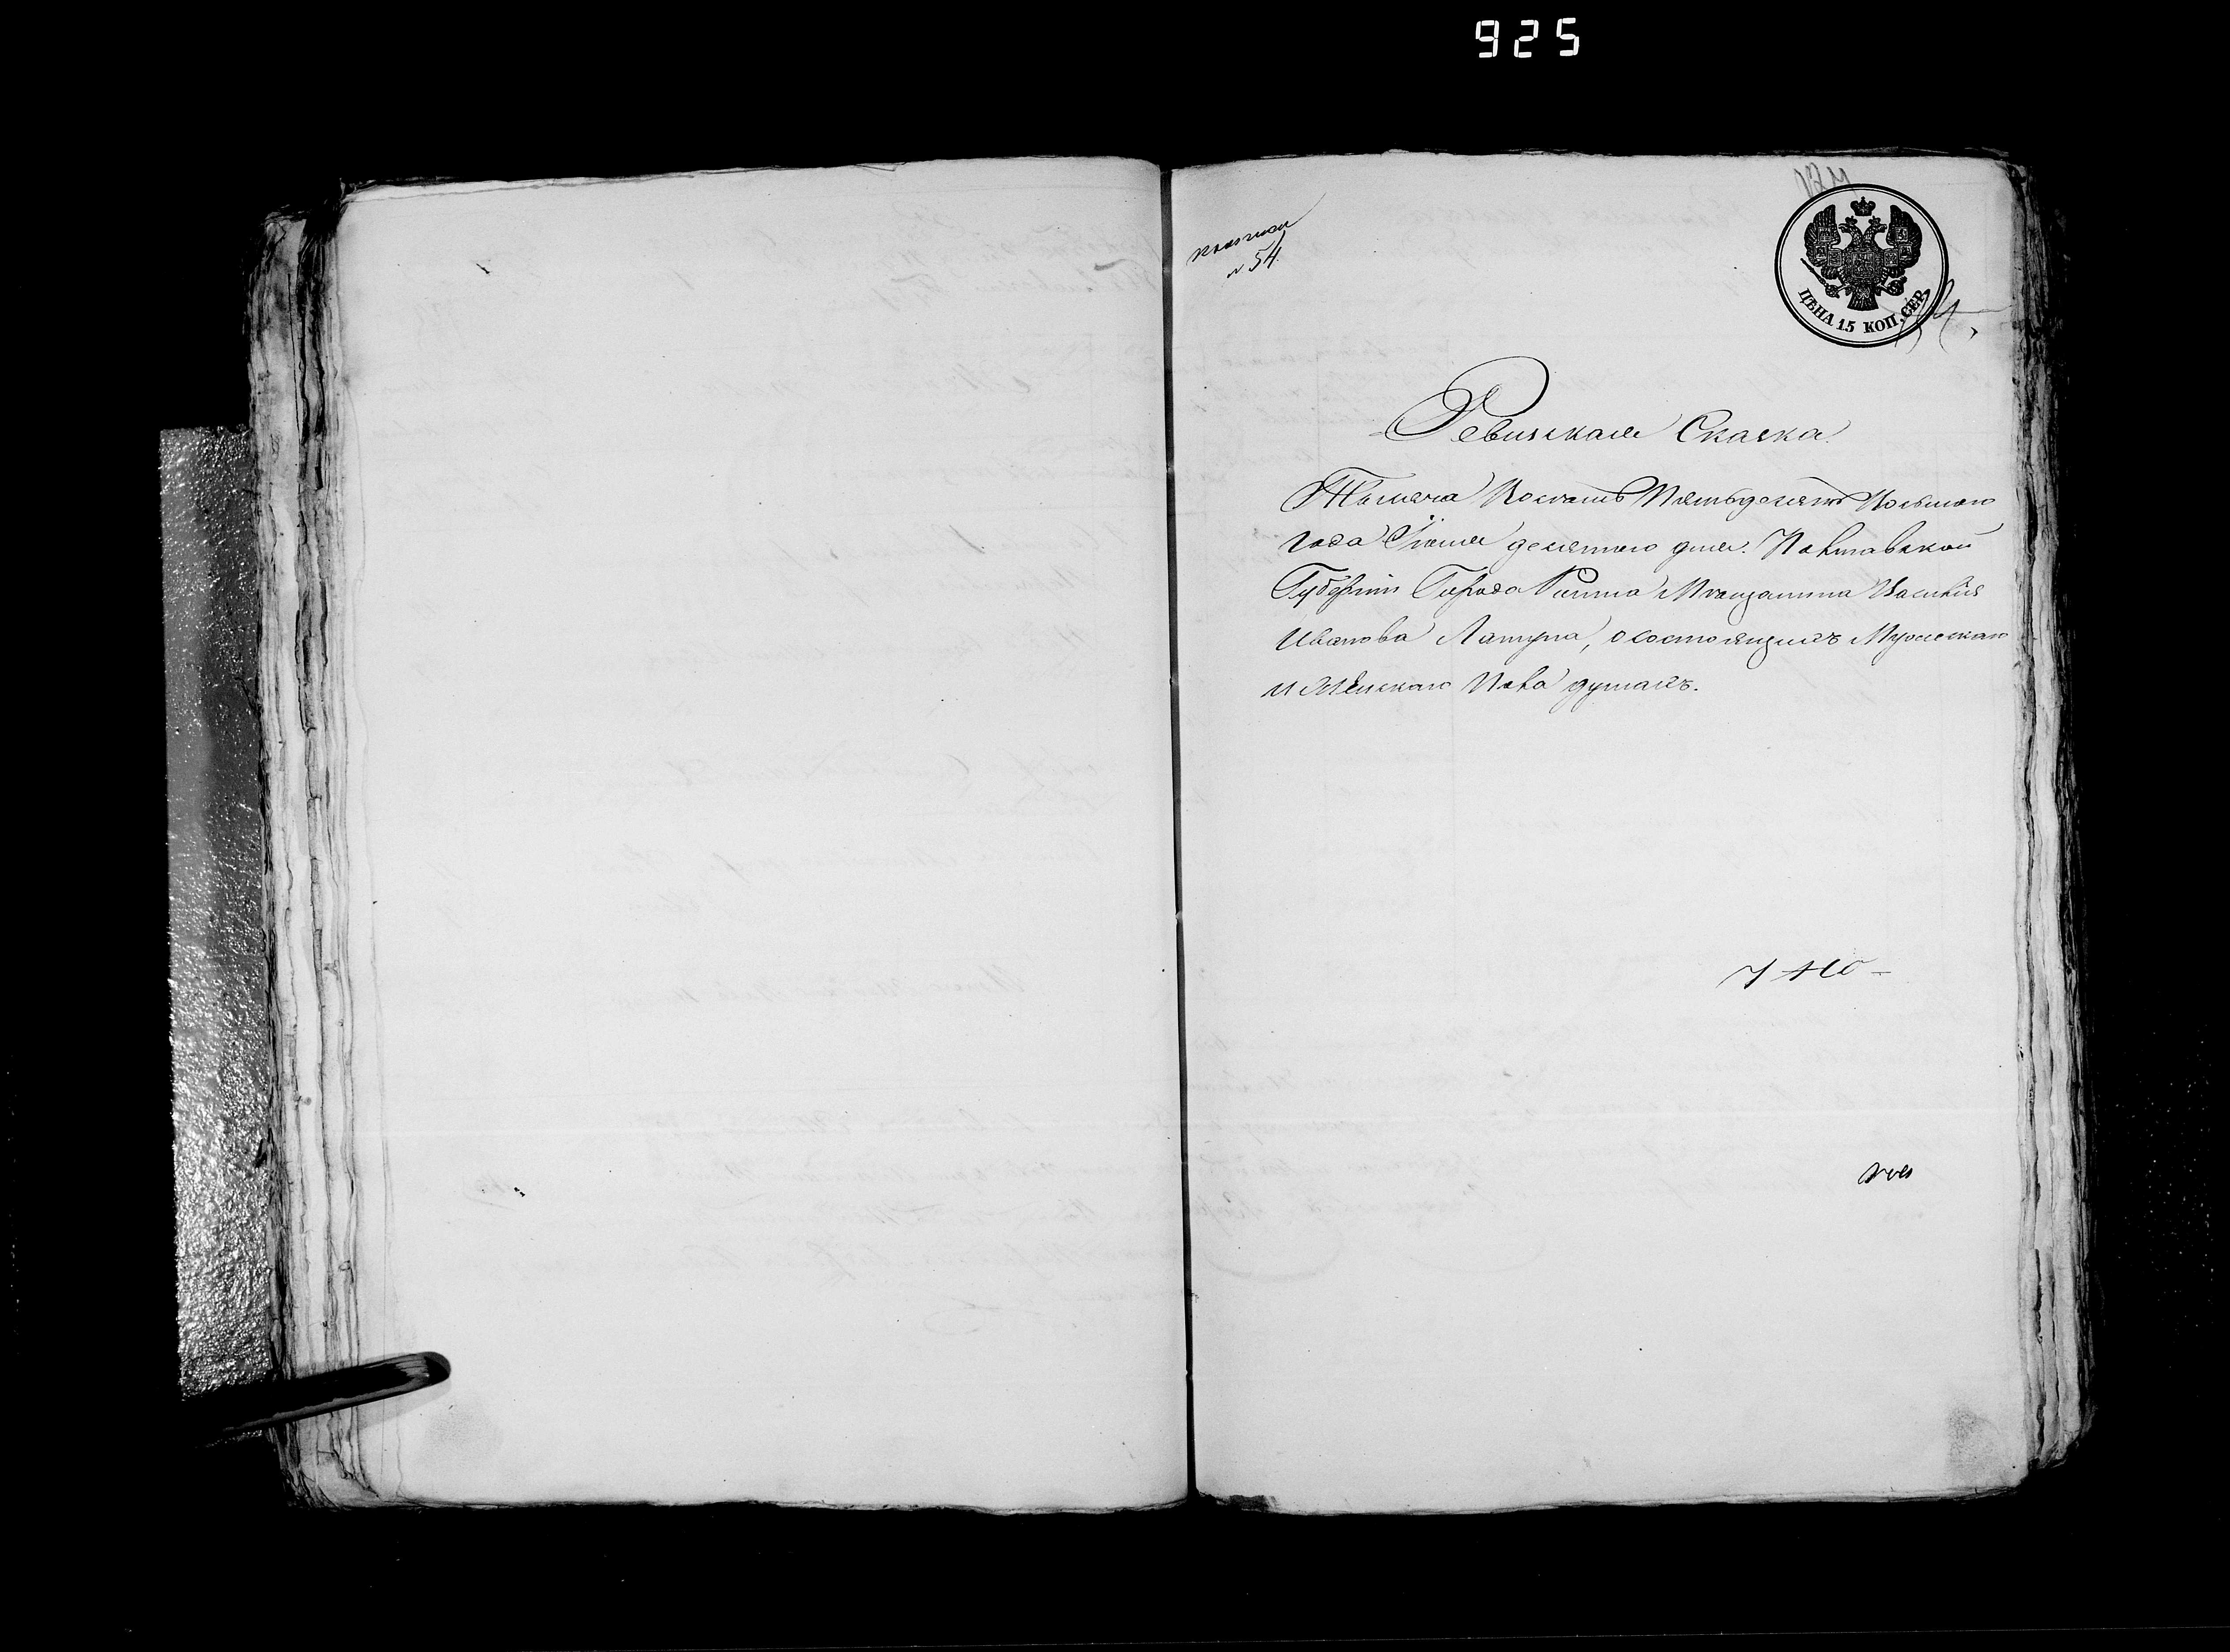 925
№ 54
ЦѢНА 15 КОП. СЕР.
Ревизская Сказка
Тысяча Восемь Пятьдесятъ Восьмаго
года Іюня десятаго дня. Полтавской
Губерніи Города Ромна Мѣщанина Василія
Иванова Лантуха, о состоящихъ Мужескаго
и Женскаго Пола душахъ.